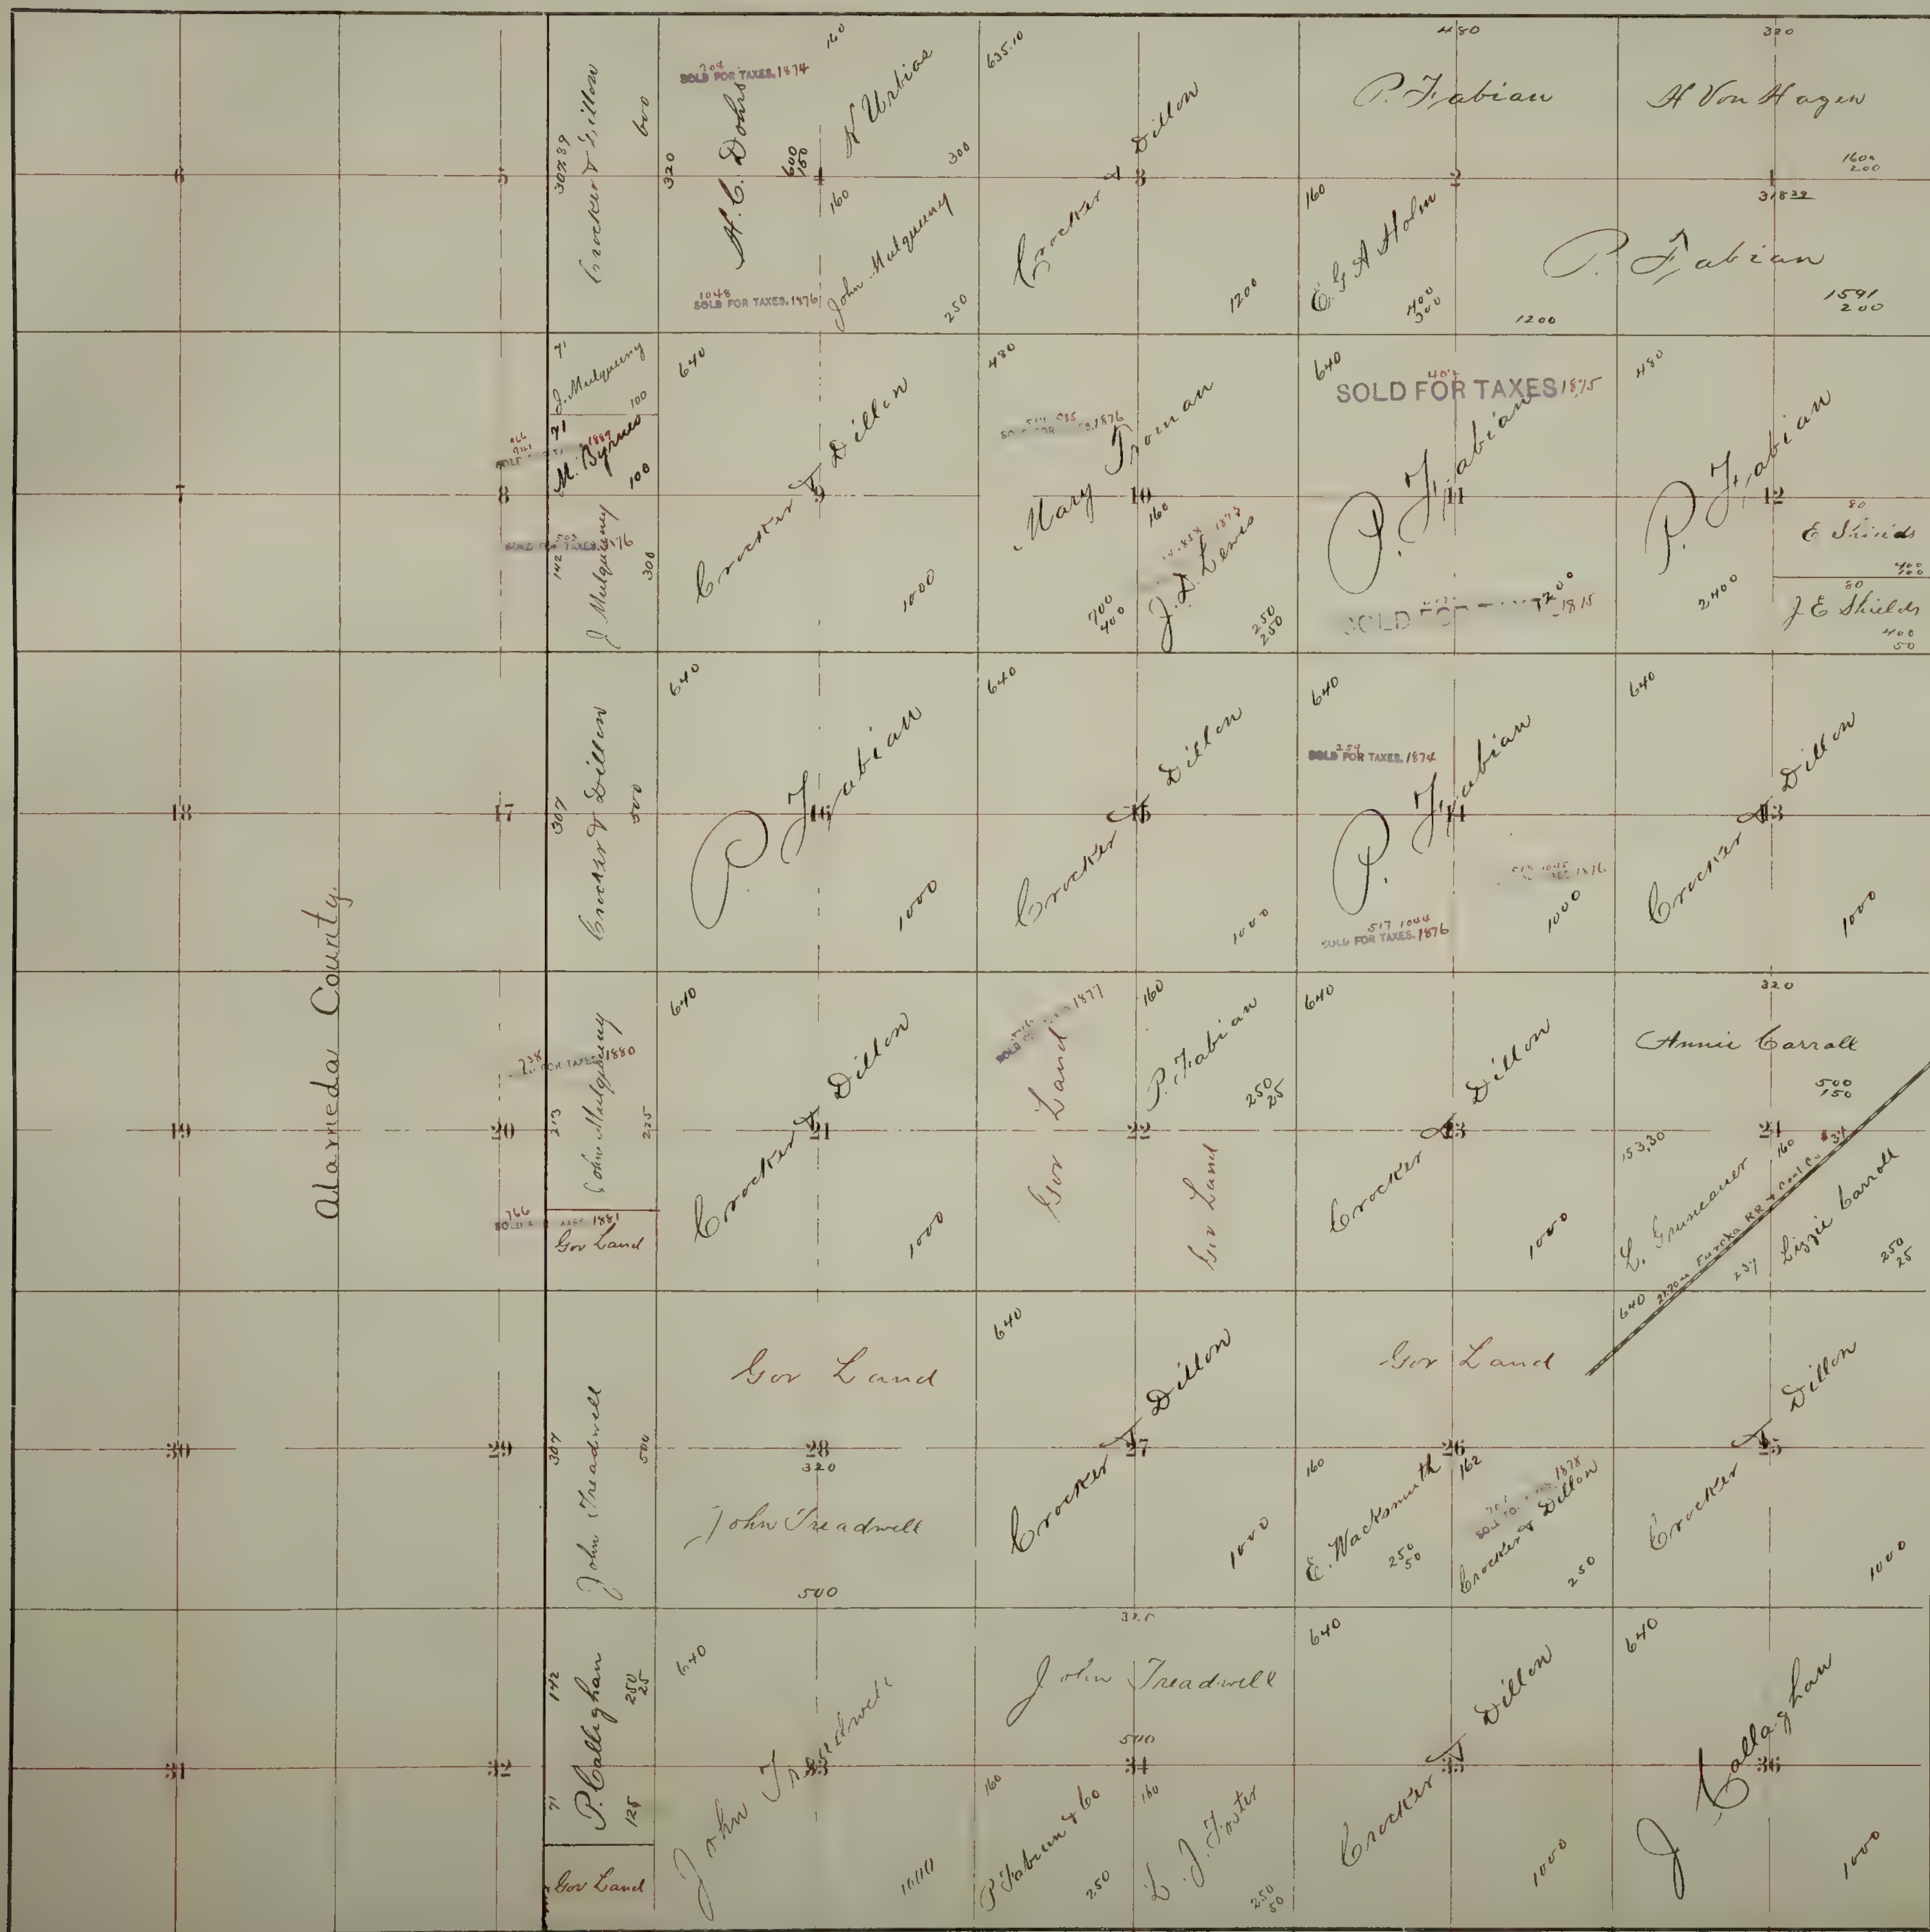 Alameda County.
6
5
307.89
Crocker & Dillon
600
204
SOLD FOR TAXES. 1874
320
H. C. Dohrs
600
150
1048
SOLD FOR TAXES. 1876
4
160
N Urbias
300
160
John Mulqueeny
250
635.10
Crocker & Dillon
3
1200
480
P. Fabian
2
160
E. G. A Holm
400
300
1200
320
H Von Hagen
1600
200
1
318 32
P. Fabian
1591
200
7
8
71
J. Mulqueeny
100
71
1889
M. Byrnes
100
503
SOLD FOR TAXES. 1876
142
J Mulqueeny
300
640
Crocker & Dillon
9
1000
480
1876
Mary Troman
10
700
400
160
J. D. Lewis
250
250
640
SOLD FOR TAXES 1875
P. Fabian
11
SOLD FOR 1875
1200
480
P. Fabian
12
2400
80
E Shields
400
100
80
J E Shields
400
50
18
17
307
Crocker & Dillon
500
640
P. Fabian
16
1000
640
Crocker & Dillon
15
1000
640
259
SOLD FOR TAXES. 1874
P. Fabian
14
1876
517 1044
SOLD FOR TAXES. 1876
1000
640
Crocker & Dillon
13
1000
19
20
738
FOR TAXES 1880
213
John Mulqueeny
225
766
SOLD 1881
Gov Land
640
Crocker & Dillon
21
1000
SOLD 1877
Gov Land
22
160
P. Fabian
250
25
Gov Land
640
Crocker & Dillon
23
1000
320
Annie Carroll
500
150
24
153.30
L. Gruneauer
160
Eureka RR & Coal Co
237
Lizzie Carroll
250
25
30
29
307
John Treadwell
500
Gov Land
28
320
John Treadwell
500
640
Crocker & Dillon
27
1000
Gov Land
26
160
E. Wacksmuth
250
50
162
1878
Crocker & Dillon
250
640
Crocker & Dillon
25
1000
31
32
142
P. Callighan
250
25
71
125
Gov Land
640
John Treadwell
33
1000
John Treadwell
500
34
160
P Fabian & Co
250
160
L. J. Foster
250
50
640
Crocker & Dillon
35
1000
640
J Callaghan
36
1000